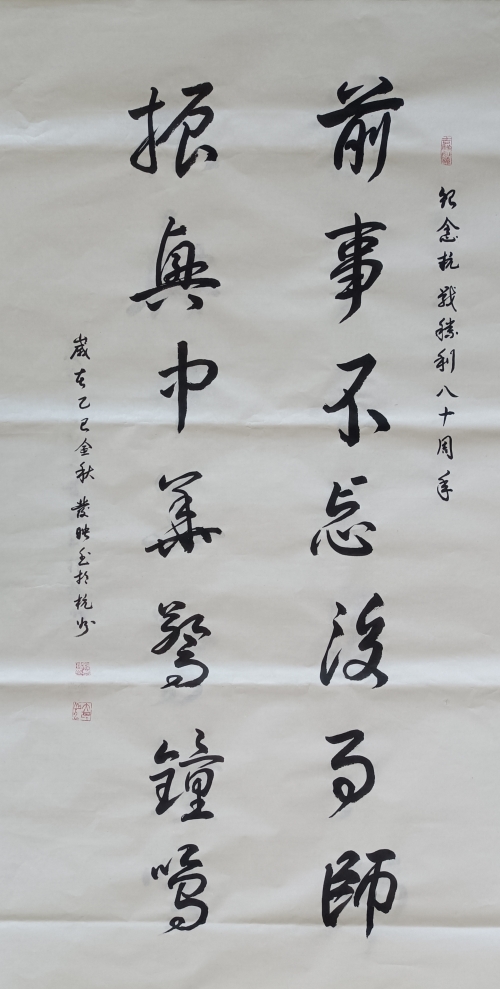 紀念抗戰勝利八十周年
前事不忘後事師
振興中華驚鐘鳴
歲在乙巳金秋
於杭州